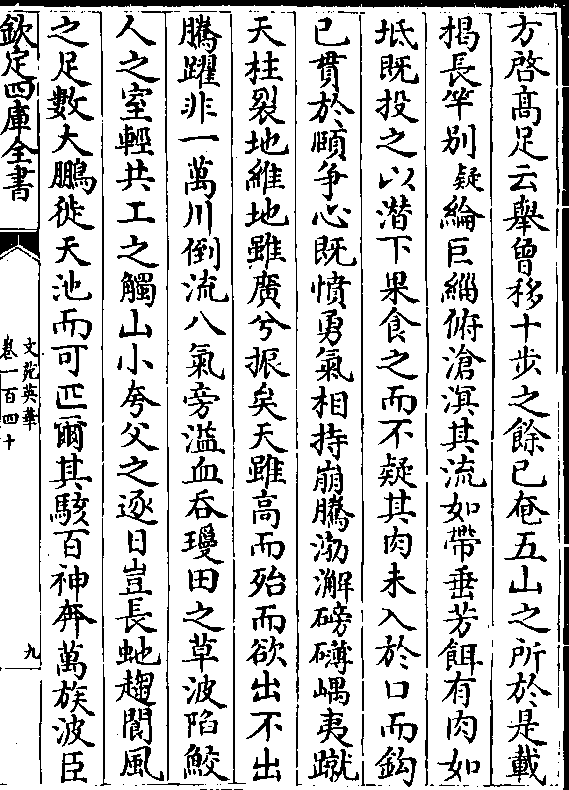 方啓髙足云舉曾移十步之餘已奄五山之所於是載
揭長竿別疑綸巨緇俯滄溟其流如帶垂芳餌有肉如
坻既投之以潛下果食之而不疑其肉未入於口而鈎
已貫於頤争心既憤勇氣相持崩騰渤澥磅礴嵎夷蹴
天柱裂地維地雖廣兮振矣天雖高而殆而欲出不出
騰躍非一萬川倒流八氣旁溢血吞瓊田之草波陷鮫
人之室輕共工之觸山小夸父之逐日豈長虵趨閬風
之足數大鵬徙天池而可匹爾其駭百神奔萬族波臣
欽定四庫全書
文苑英華
卷一百四十
九